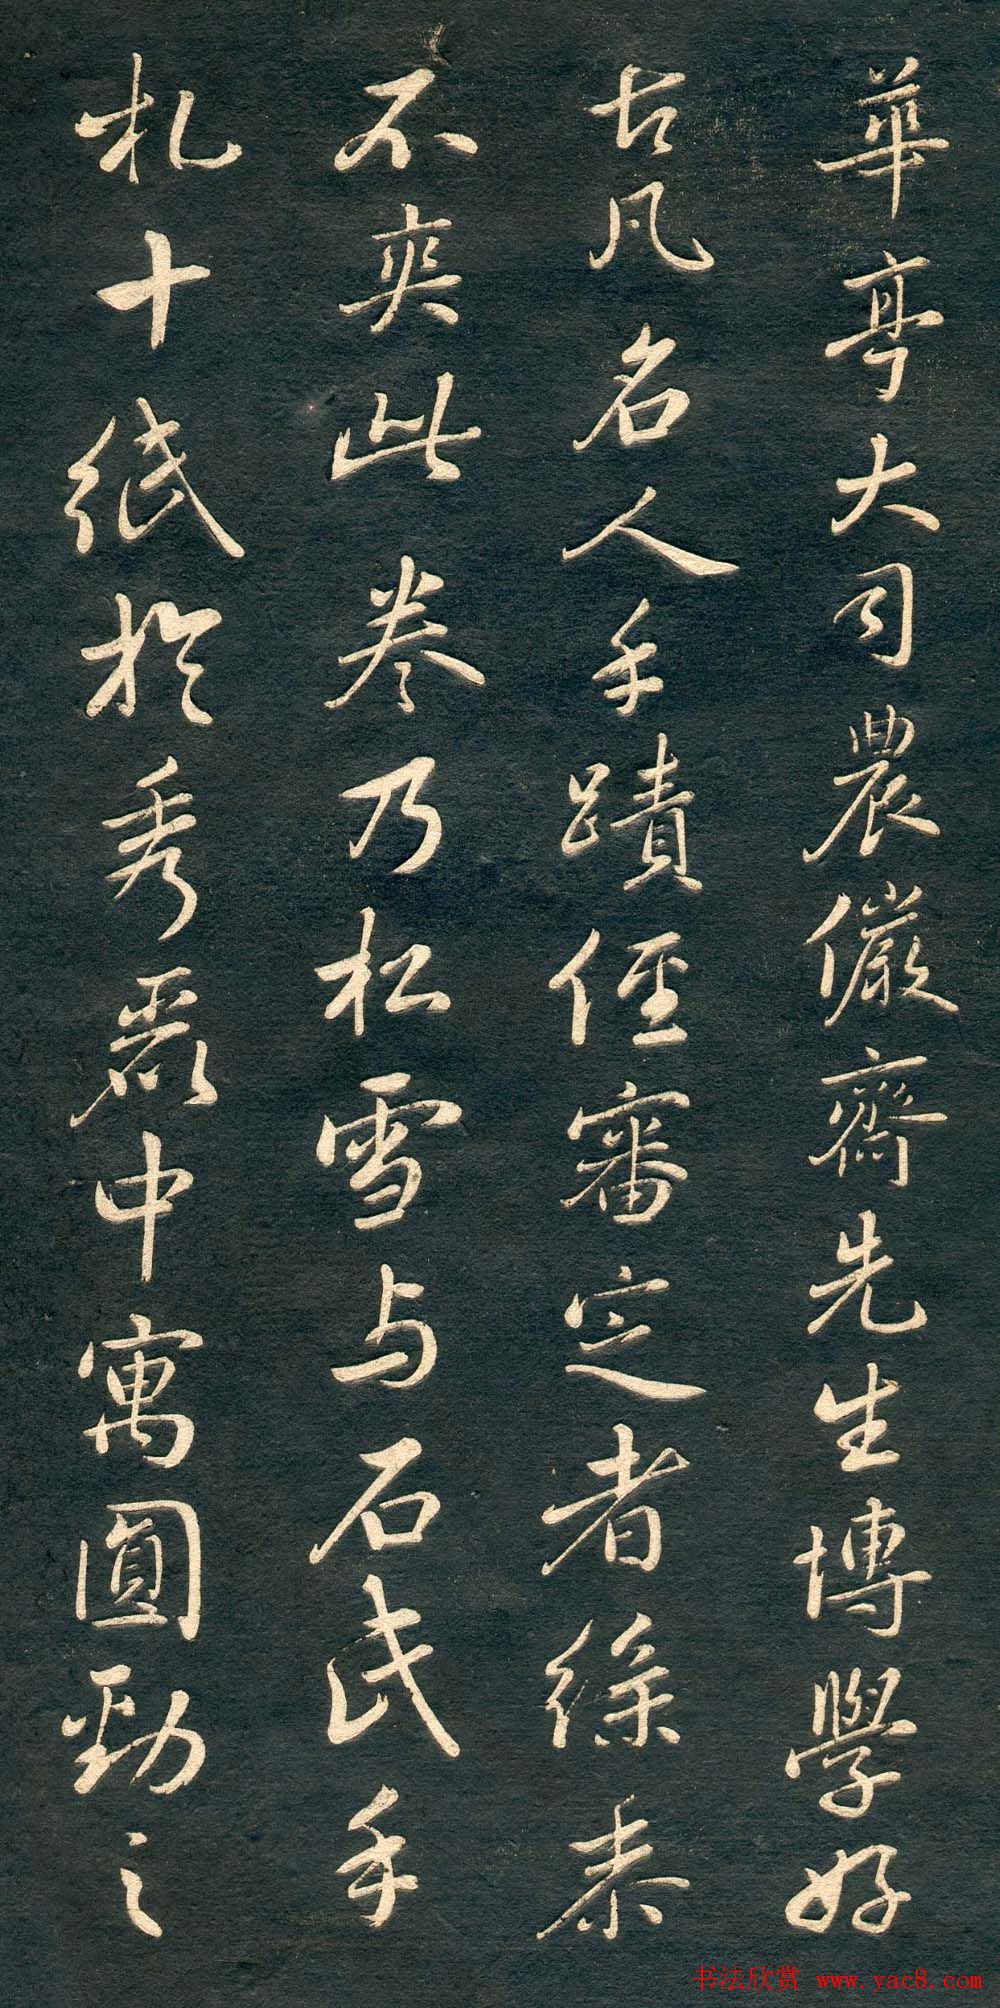 華亭大司農儼齋先生博學好
古凡名人手蹟經審定者絲泰
不爽此卷乃松雪与石民手
札十紙於秀麗中寓圓勁之
书法欣赏 www.yac8.com